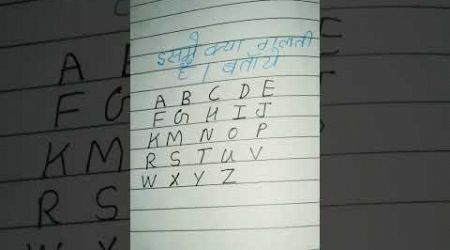 इसमे क्या गलती
है । बताये
A B C D E
F G H I J
K M N O P
R S T U V
W X Y Z